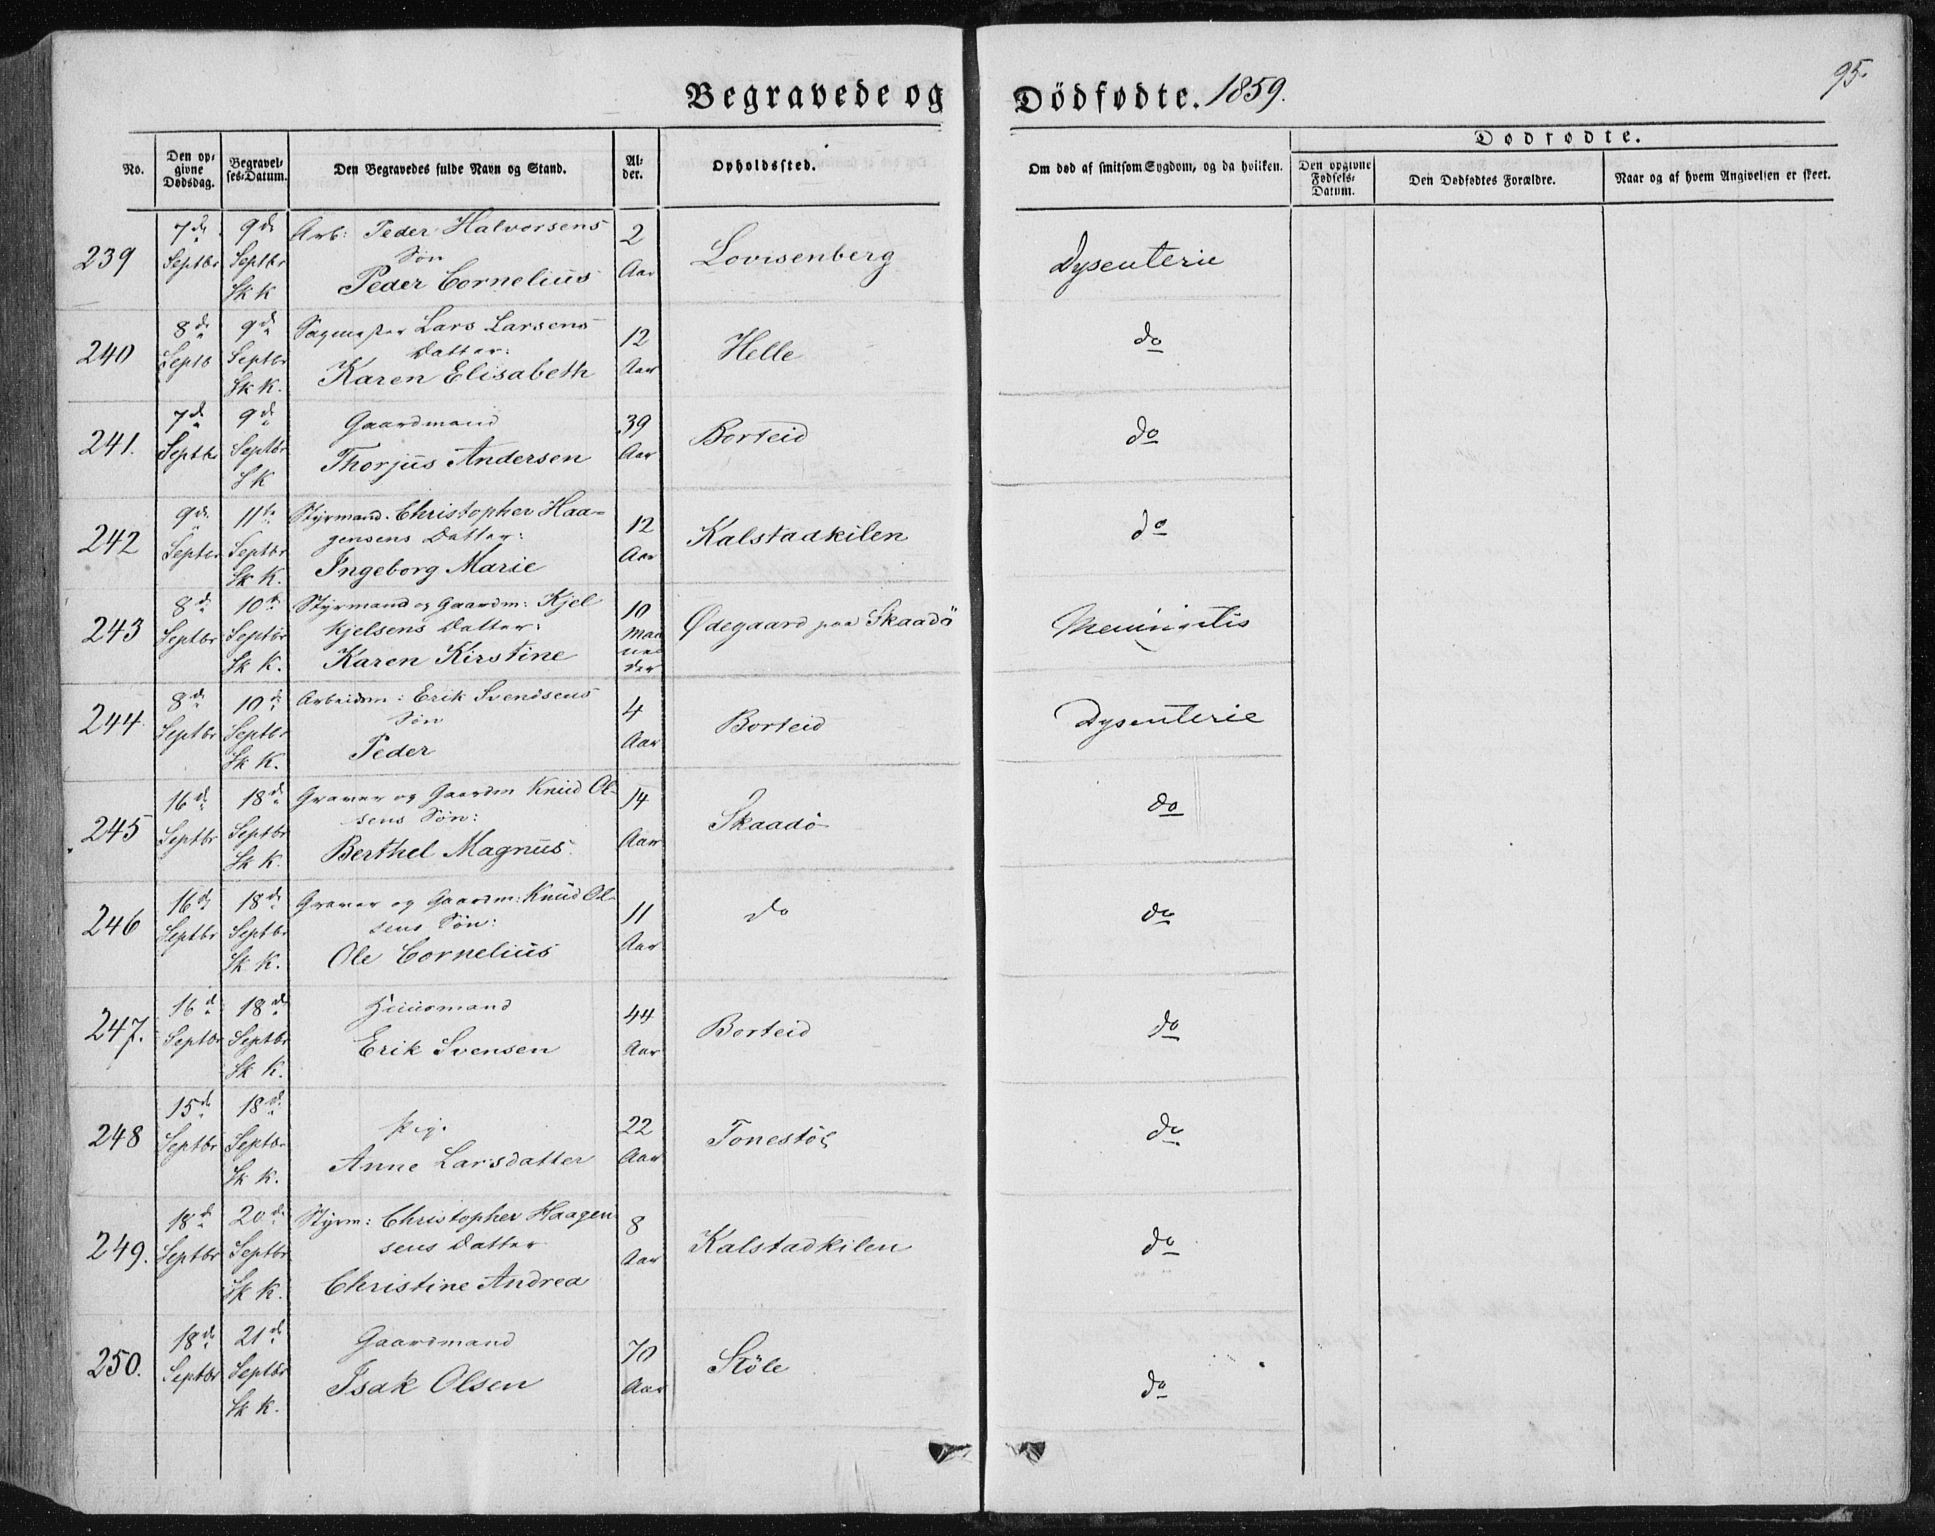 95.
Begravede og Dödfødte. 1859.
Dødfødte.
No.
Den opgivne Dødsdag.
Begravelses-Datum.
Den Begravedes fulde Navn og Stand.
Alder.
Opholdssted.
Om død af smitsom Sygdom, og da hvilken.
Den opgivne Fødsels-Datum.
Den Dødfødtes Forældre.
Naar og af hvem Angivelsen er skeet.
239 7de Septbr 9de Septbr Sk K Arb: Peder Halvorsens Søn Peder Cornelius 2 Aar Lovisenberg Dysenterie
240 8de Septb 9de Septbr Sk K. Sagmester Lars Larsens Datter: Karen Elisabeth 12 Aar Helle do
241. 7de Septbr 9de Septbr Sk Gaardmand Thorjus Andersen 39 Aar Borteid do
242 9de Septbr 11te Septbr Sk K. Styrmand Christopher Haagensens Datter: Ingeborg Marie 12 Aar Kalstadkilen do
243 8de Septbr 10de Septbr Sk K. Styrmand og Gaardm: Kjel Kjelsens Datter: Karen Kirstine 10 Maaneder Ødegaard paa Skaadö Meningitis
244. 8de Septbr 10de Septbr Sk K. Arbeidsm: Erik Svendsens Søn Peder 4 Aar Borteid Dysenterie
245 16de Septbr 18de Septbr Sk K. Graver og Gaardm Knud Olsens Søn: Berthel Magnus. 14 Aar Skaadö do
246 16de Septbr 18de Septbr Sk K. Graver og Gaardm: Knud Olsens Søn: Ole Cornelius 11 Aar do do
247. 16de Septbr 18de Septbr Sk K. Huusmand Erik Svensen 44 Aar Borteid do
248 15de Septbr 18de Septbr Sk K. Pige Anne Larsdatter 22 Aar Tonestöl do
249. 18de Septbr 20de Septbr Sk K. Styrm: Christopher Haagensens Datter Christine Andrea 8 Aar Kalstadkilen do
250. 18de Septbr 21de Septbr Sk K. Gaardmand Isak Olsen 70 Aar Stöle do